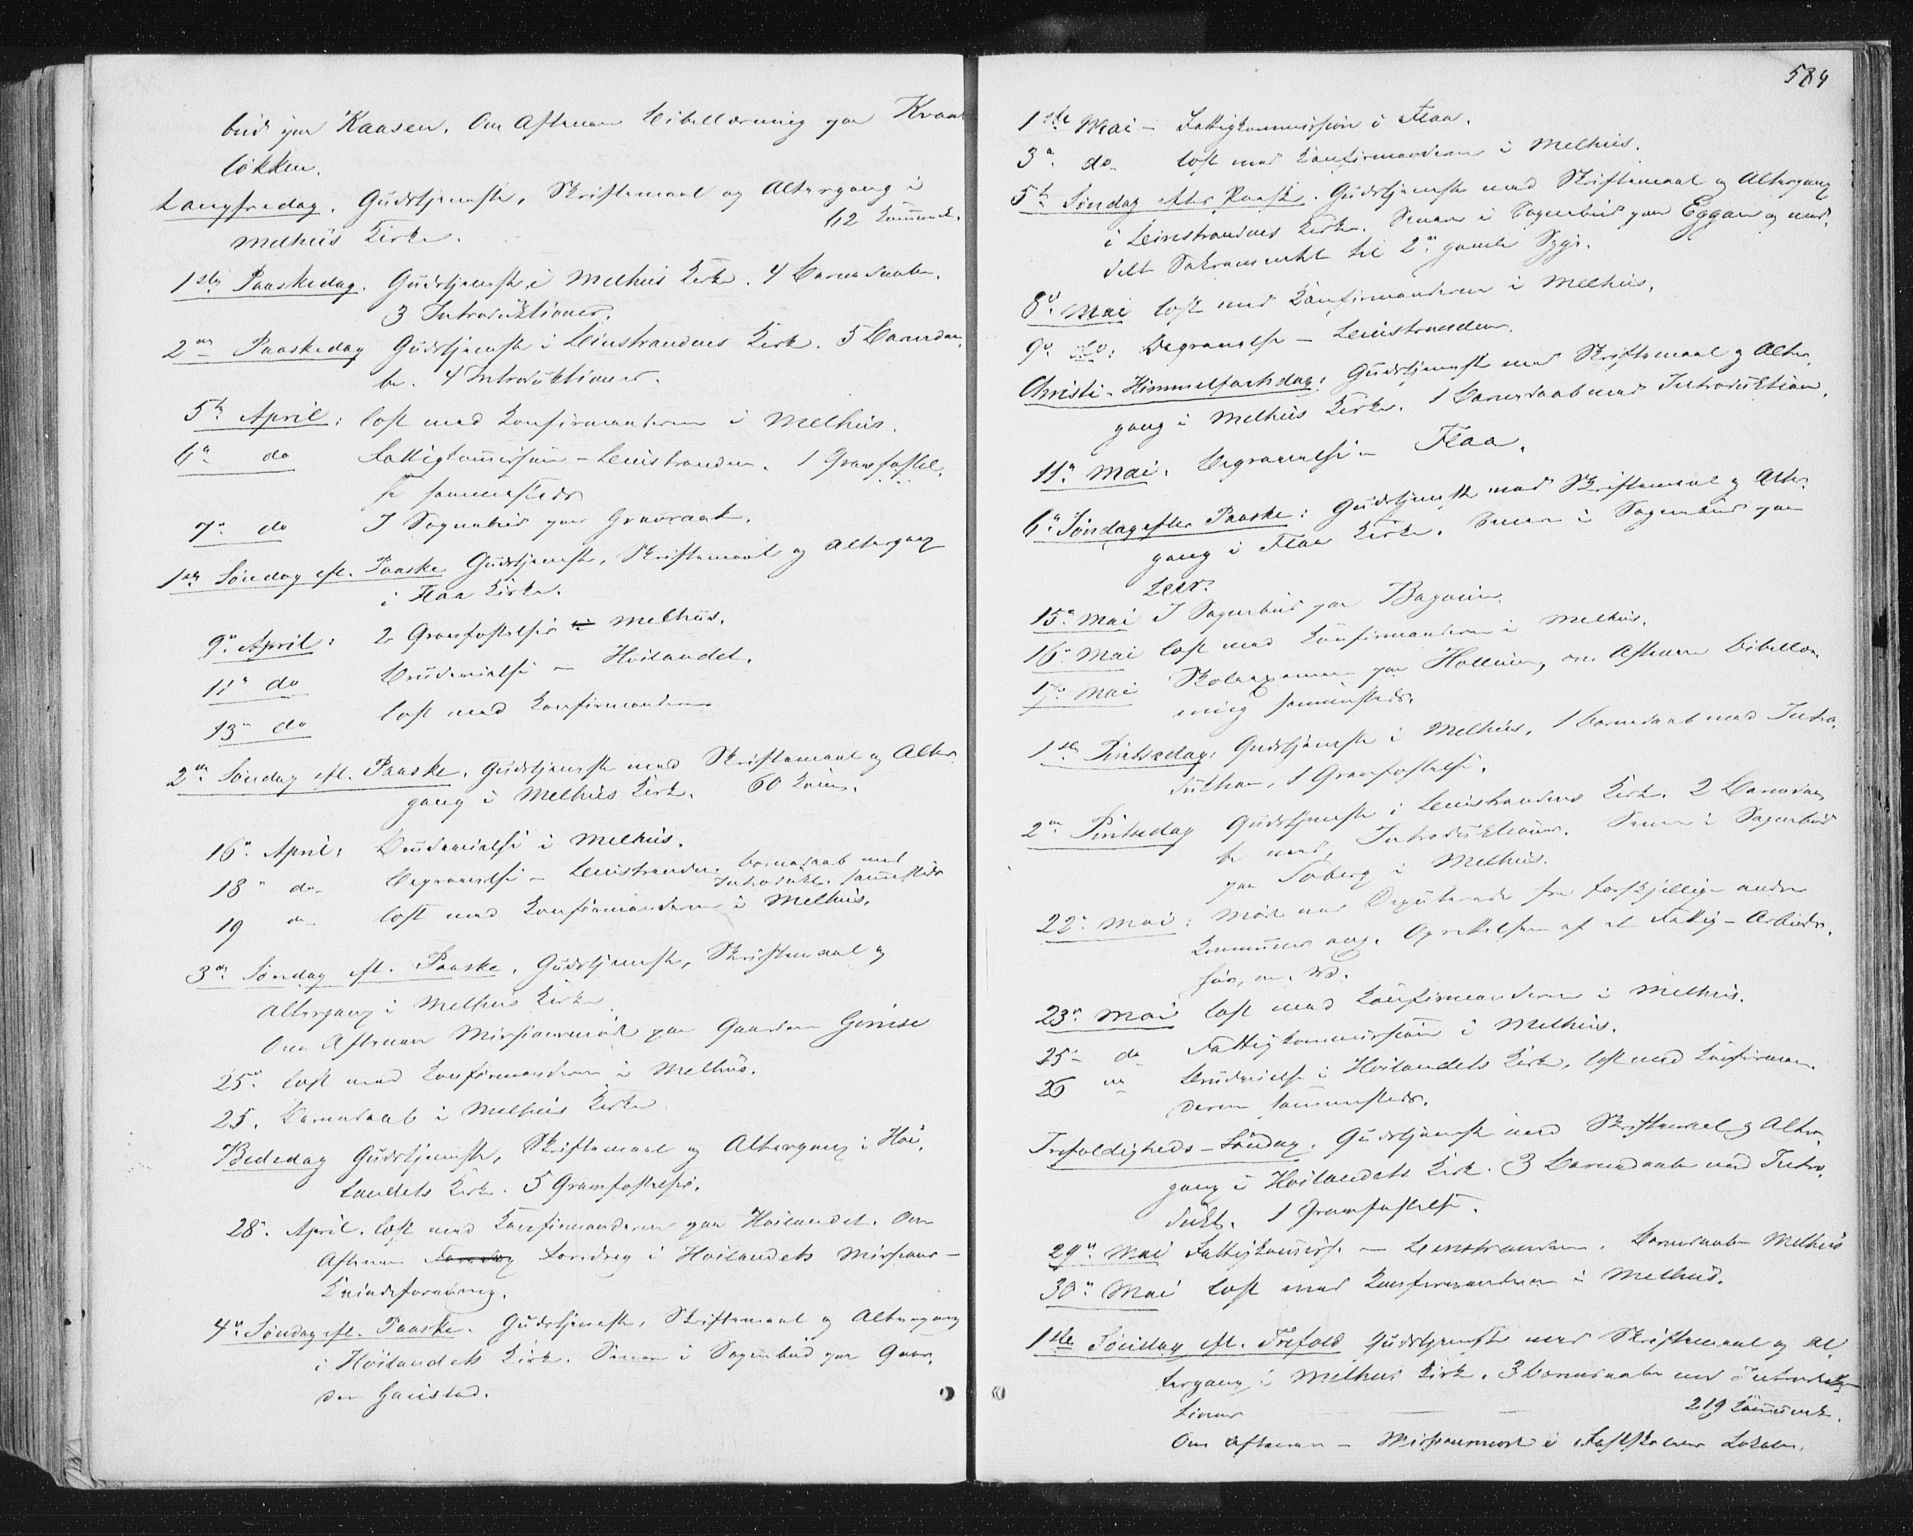 bud paa Kaasen. Om Aftenen Bibellæsning paa Kraa
løkken.
Langfredag. Gudstjeneste, Skriftemaal og Altergang i
Melhus Kirke. 62 Kommunik.
1ste Paaskedag. Gudstjeneste i Melhus Kirke. 4 Barnedaabe.
3 Introduktioner.
2den Paaskedag Gudstjeneste i Leinstrandens Kirke. 5 Barnedaa
be. 4 Introduktioner.
5te April: læst med Konfirmanderne i Melhus.
6te do Fattigkommission – Leinstranden. 1 Gravfæstel
se sammesteds
7de do I Sognebud paa Gravraak.
1ste Søndag eft. Paaske Gudstjeneste, Skriftemaal og Altergang
i Flaa Kirke.
9de April: 2 Gravfæstelser i Melhus.
11te do Brudevielse – Høilandet.
13de do læst med Konfirmanderne
2den Søndag eft. Paaske. Gudstjeneste med Skriftemaal og Alter
gang i Melhus Kirke. 60 Kom.
16de April: Brudevielse i Melhus.
18de do Begravelse – Leinstranden. Barnedaab med
Introdukt. sammesteds
19 do læst med Konfirmanderne i Melhus.
3die Søndag eft. Paaske. Gudstjeneste, Skriftemaal og
Altergang i Melhus Kirke
Om Aftenen Missionsmøde paa Gaarden Gimse
25de læst med Konfirmanderne i Melhus.
25. Barnedaab i Melhus Kirke
Bededag Gudstjeneste, Skriftemaal og Altergang i Høi
landets Kirke. 5 Gravfæstelser.
28de April. læst med Konfirmanderne paa Høilandet. Om
Aftenen Foredrag Foredrag i Høilandets Missions-
Kvindeforening.
4de Søndag eft. Paaske. Gudstjeneste, Skriftemaal og Altergang
i Høilandets Kirke. Senere i Sognebud paa Gaar
den Gaustad.
584
1ste Mai – Fattigkommission i Flaa.
3die do læst med Konfirmanderne i Melhus.
5te Søndag efter Paaske. Gudstjeneste med Skriftemaal og Altergang
i Leinstrandens Kirke. Senere i Sognebud paa Eggan og med
delt Sakramentet til 2de gamle Syge.
8de Mai læst med Konfirmanderne i Melhus.
9de do: Begravelse – Leinstranden.
Christi-Himmelfartsdag: Gudstjeneste med Skriftemaal og Alter
gang i Melhus Kirke. 1 Barnedaab med Introduktion.
11te Mai. Begravelse – Flaa.
6te Søndag efter Paaske: Gudstjeneste med Skriftemaal og Alter
gang i Flaa Kirke. Senere i Sognebud paa
Leer.
15de Mai I Sognebud paa
16de Mai læst med Konfirmanderne i Melhus.
17de Mai Skoleexamen paa Hollum, om Aftenen Bibellæs
ning sammesteds.
1ste Pintsedag: Gudstjeneste i Melhus, 1 Barnedaab med Intro
duktion, 1 Gravfæstelse.
2den Pintsedag Gudstjeneste i Leinstrandens Kirke. 2 Barnedaa
be med Introduktioner. Senere i Sognebud
paa Søberg i Melhus.
22de Mai: Møde med Deputerede fra forskjellige andre
Kommuner ang. Oprettelsen af et Fattig-Arbeids
hus, m. V.
23de Mai læst med Konfirmanderne i Melhus.
25de do Fattigkommission i Melhus.
26 do Brudevielse i Høilandets Kirke, læst med Konfirman
derne sammesteds.
Trefoldigheds-Søndag. Gudstjeneste med Skriftemaal og Alter
gang i Høilandets Kirke. 3 Barnedaabe med Intro
dukt. 1 Gravfæstelse.
29de Mai Fattigkommiss. – Leinstranden. Barnedaab – Melhus
30de Mai læst med Konfirmanderne i Melhus.
1ste Søndag eft. Trefold Gudstjeneste med Skriftemaal og Al
tergang i Melhus Kirke. 3 Barnedaabe med Introduk
tioner 219 Kommunik.
Om Aftenen – Missionsmøde i Fastskolens Lokale.